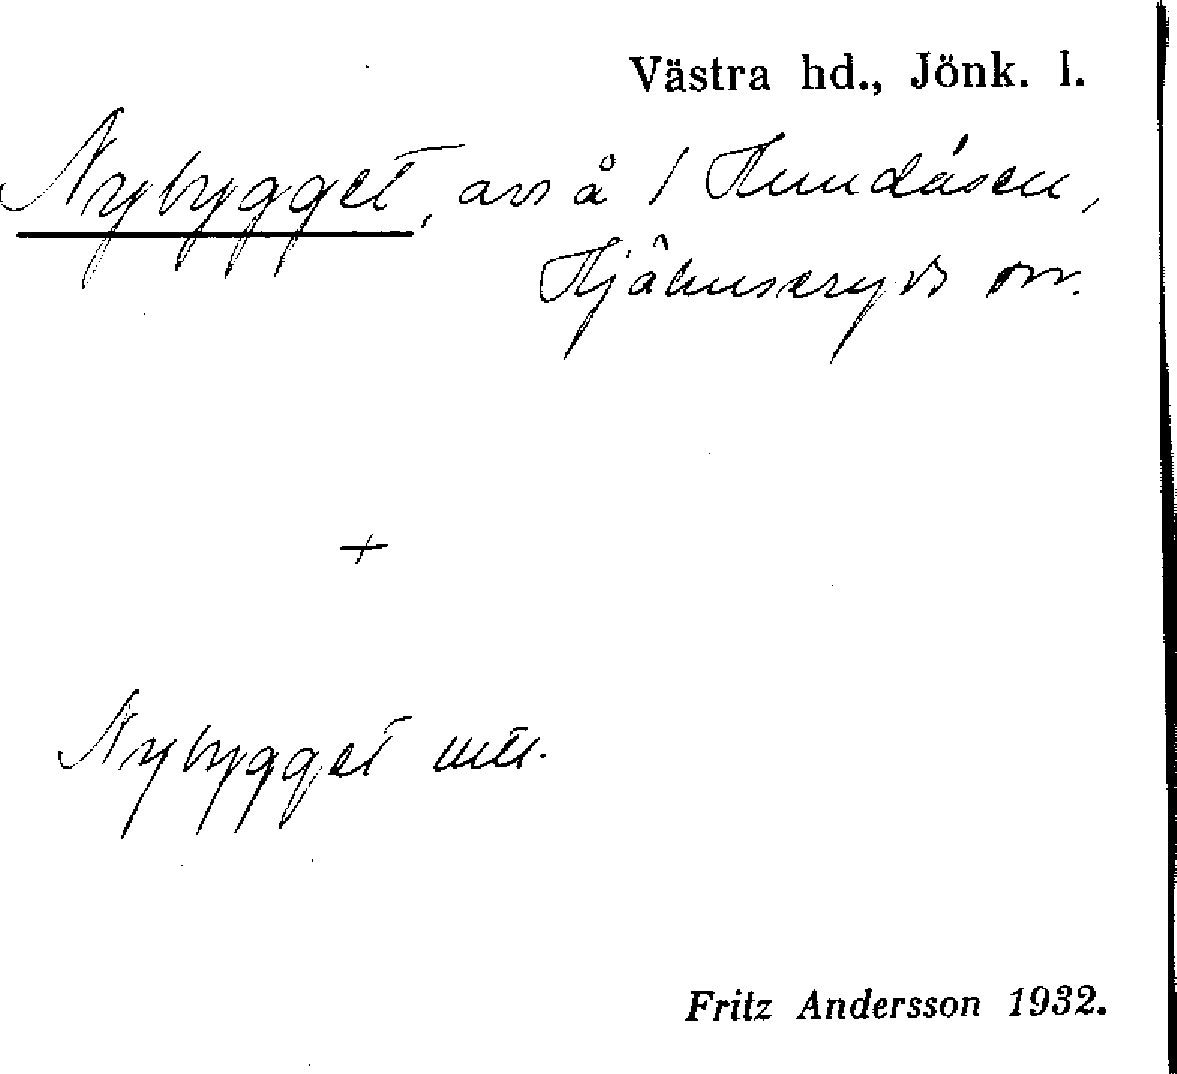 Västra hd., Jönk. l.
Nybygget, avs å 1 Hundåsen,
Hjälmseryds sn.
+
Nybygget utt.
Fritz Andersson 1932.